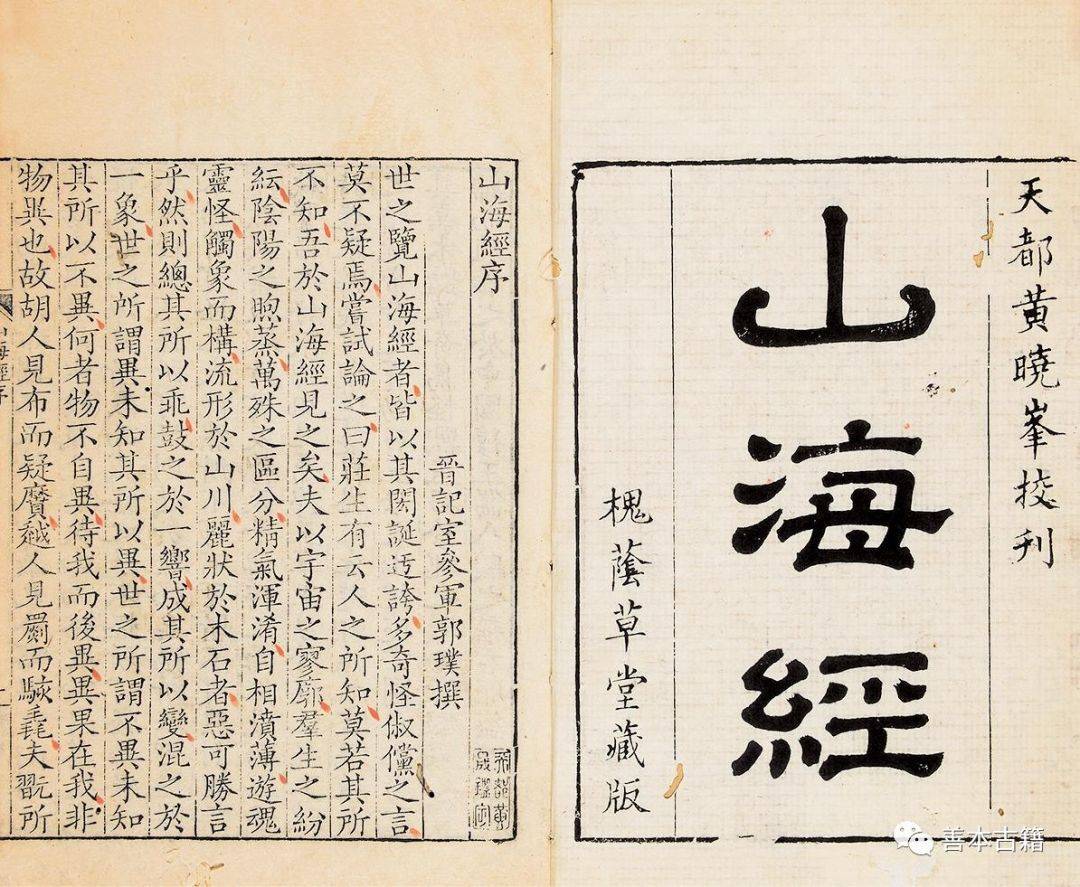 天都黃曉峯挍刊
山海經
槐蔭草堂藏版
山海經序
晉記室參軍郭璞撰
世之覽山海經者皆以其閎誕迂誇多奇怪俶儻之言
莫不疑焉嘗試論之曰莊生有云人之所知莫若其所
不知吾於山海經見之矣夫以宇宙之寥廓羣生之紛
紜陰陽之煦蒸萬殊之區分精氣渾淆自相濆薄遊魂
靈怪觸象而構流形於山川麗狀於木石者惡可勝言
乎然則總其所以乖鼓之於一響成其所以變混之於
一象世之所謂異未知其所以異世之所謂不異未知
其所以不異何者物不自異待我而後異異果在我非
物異也故胡人見布而疑黂越人見罽而駭毳夫翫所
海經序
善本古籍